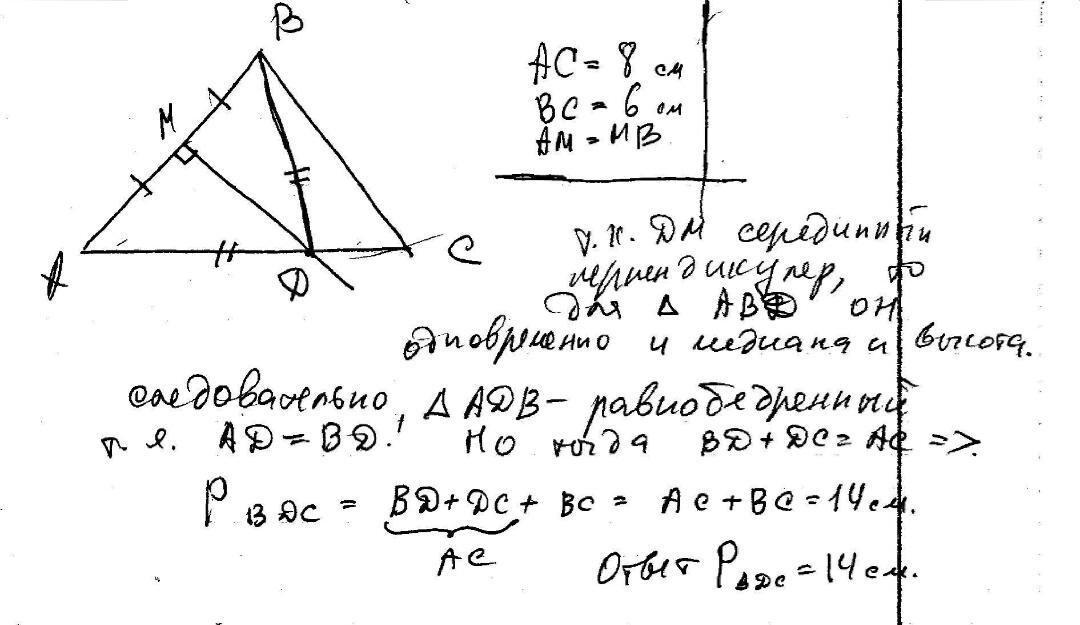 B
M
A
D
C
AC = 8 см
BC = 6 см
AM = MB
т.к. DM серединный
перпендикуляр, то
для Δ ABD он
одновременно и медиана и высота.
следовательно, Δ ADB – равнобедренный
т.е. AD = BD! Но тогда BD + DC = AC =>
P BDC = BD + DC + BC = AC + BC = 14 см.
AC
Ответ P BDC = 14 см.